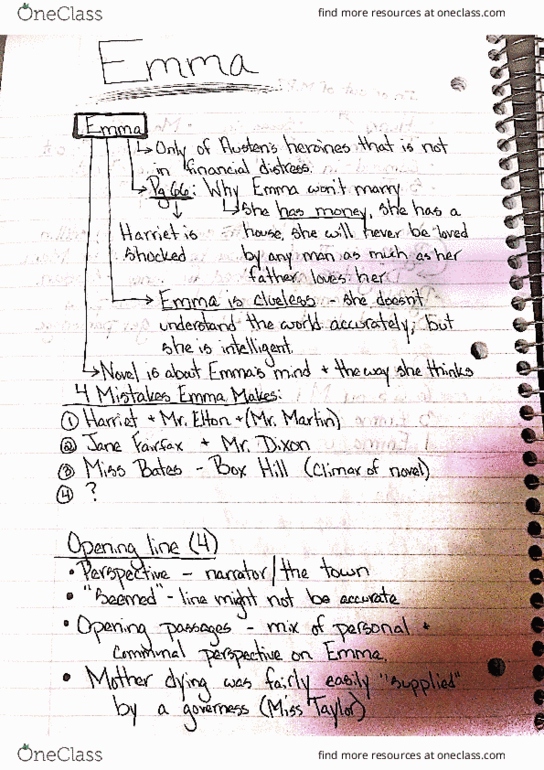 OneClass
find more resources at oneclass.com
Emma
Emma
Only of Austen's heroines that is not
in financial distress.
Pg 66: Why Emma won't marry
She has money, she has a
Harriet is house, she will never be loved
shocked by any man as much as her
father loves her
Emma is clueless - she doesn't
understand the world accurately, but
she is intelligent.
Novel is about Emma's mind + the way she thinks
4 Mistakes Emma Makes:
① Harriet + Mr. Elton + (Mr. Martin)
② Jane Fairfax + Mr. Dixon
③ Miss Bates - Box Hill (Climax of novel)
④ ?
Opening line (4)
• Perspective - narrator/the town
• "Seemed" - line might not be accurate
• Opening passages - mix of personal +
communal perspective on Emma.
• Mother dying was fairly easily "supplied"
by a governess (Miss Taylor)
OneClass
find more resources at oneclass.com